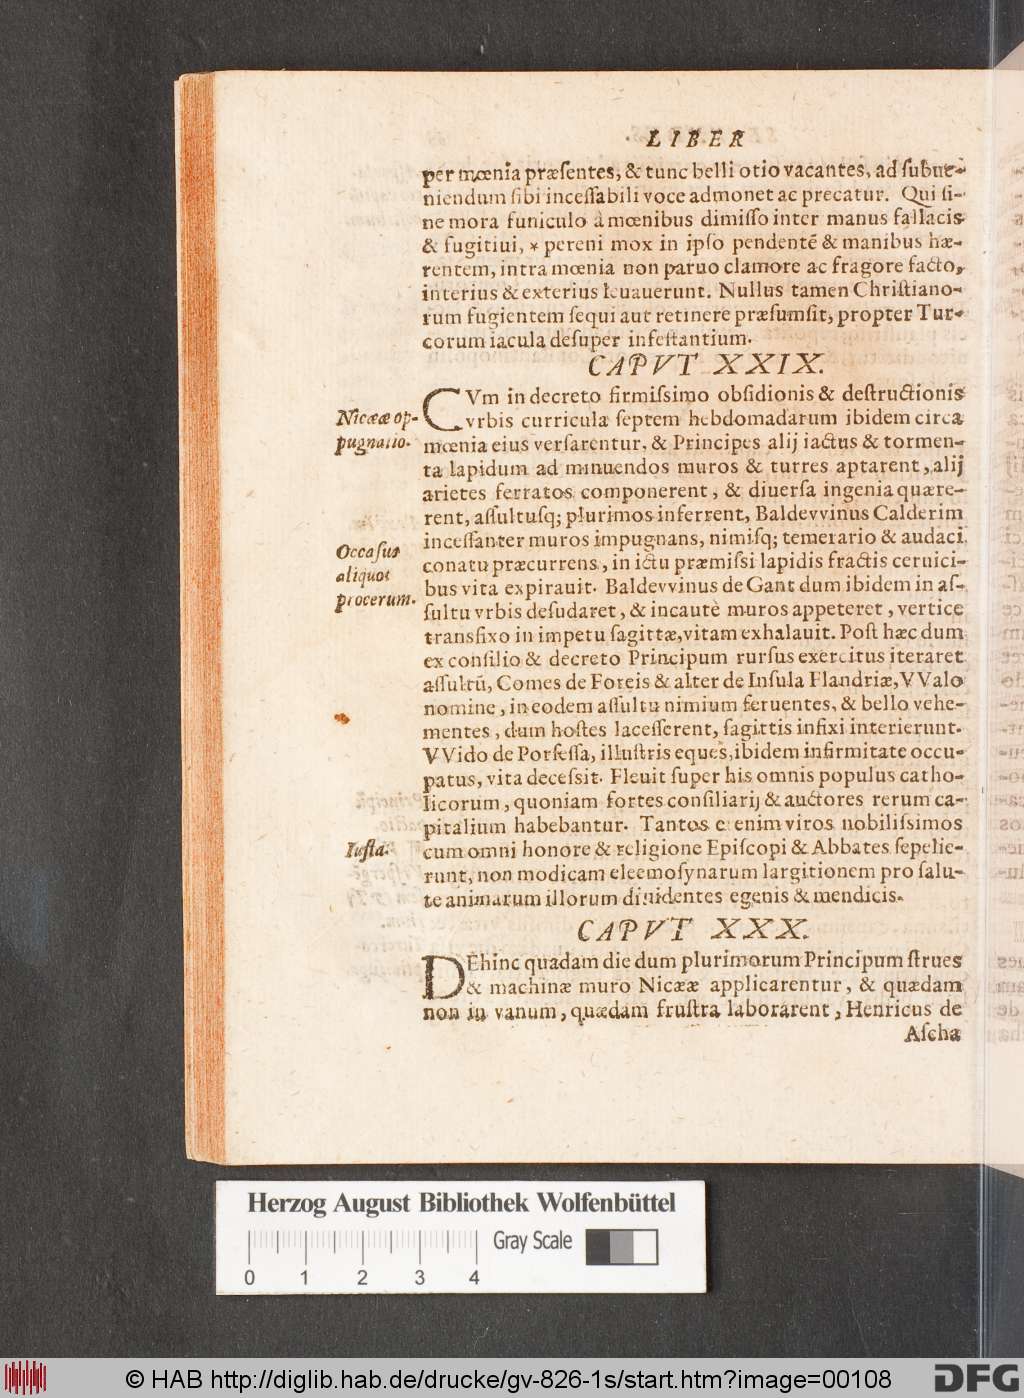 LIBER
per mœnia præſentes, & tunc belli otio vacantes, ad ſubue-
niendum ſibi inceſſabili voce admonet ac precatur. Qui ſi-
ne mora funiculo à mœnibus dimiſſo inter manus fallacis
& fugitiui, * pereni mox in ipſo pendentẽ & manibus hæ-
rentem, intra mœnia non paruo clamore ac fragore facto,
interius & exterius leuauerunt. Nullus tamen Chriſtiano-
rum fugientem ſequi aut retinere præſumſit, propter Tur-
corum iacula deſuper infeſtantium.
CAPVT XXIX.
Nicææ op-
pugnatio.
CVm in decreto firmiſsimo obſidionis & deſtructionis
vrbis curricula ſeptem hebdomadarum ibidem circa
mœnia eius verſarentur, & Principes alij iactus & tormen-
ta lapidum ad minuendos muros & turres aptarent, alij
arietes ferratos componerent, & diuerſa ingenia quære-
rent, aſſultuſq; plurimos inferrent, Baldevvinus Calderim
Occaſus
aliquot
procerum.
inceſſanter muros impugnans, nimiſq; temerario & audaci
conatu præcurrens, in ictu præmiſsi lapidis fractis ceruici-
bus vita expirauit. Baldevvinus de Gant dum ibidem in aſ-
ſultu vrbis deſudaret, & incautè muros appeteret, vertice
transfixo in impetu ſagittæ, vitam exhalauit. Poſt hæc dum
ex conſilio & decreto Principum rurſus exercitus iteraret
aſſultũ, Comes de Foreis & alter de Inſula Flandriæ, VValo
nomine, in eodem aſſultu nimium feruentes, & bello vehe-
mentes, dum hoſtes laceſſerent, ſagittis infixi interierunt.
VVido de Porſeſſa, illuſtris eques, ibidem infirmitate occu-
patus, vita deceſsit. Fleuit ſuper his omnis populus catho-
licorum, quoniam fortes conſiliarij & auctores rerum ca-
pitalium habebantur. Tantos etenim viros nobiliſsimos
Iuſta.
cum omni honore & religione Epiſcopi & Abbates ſepelie-
runt, non modicam eleemoſynarum largitionem pro ſalu-
te animarum illorum diuidentes egenis & mendicis.
CAPVT XXX.
DEhinc quadam die dum plurimorum Principum ſtrues
& machinæ muro Nicææ applicarentur, & quædam
non in vanum, quædam fruſtra laborarent, Henricus de
Aſcha
Herzog August Bibliothek Wolfenbüttel
Gray Scale
0 1 2 3 4
© HAB http://diglib.hab.de/drucke/gv-826-1s/start.htm?image=00108
DFG